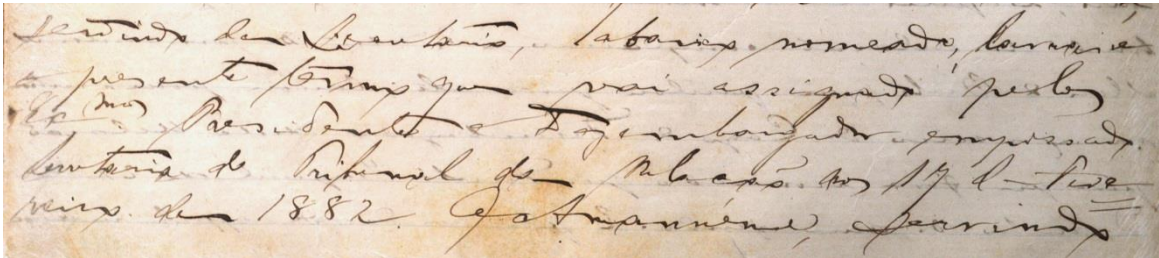 servindo de Secretario, abaixo nomeado, lavrou e
o presente termo que vai assignado pelo
Ex.mo Presidente e Dezembargador empossado.
Secretaria do Tribunal da Relação aos 17 de Feve-
reiro de 1882. E servindo